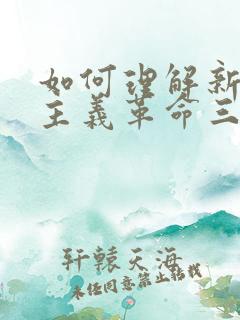 如何理解新
主义革命三
轩辕天海
未经同意禁止转载